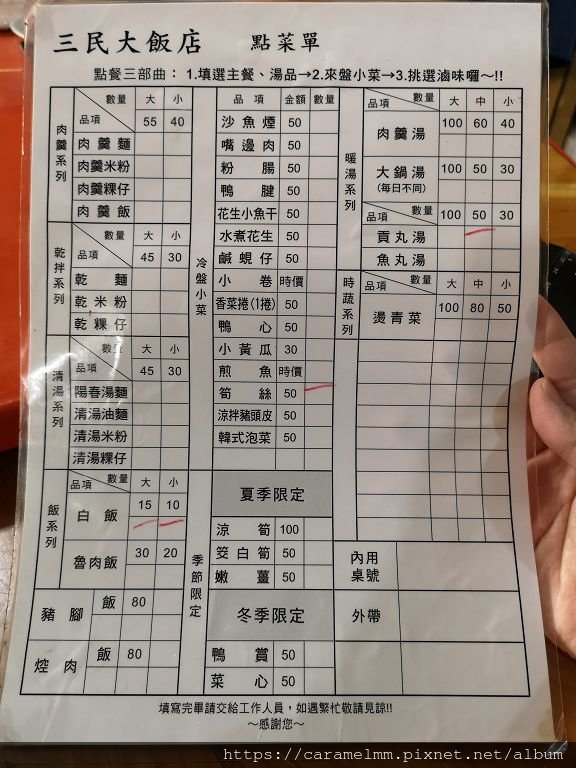 三民大飯店 點菜單
點餐三部曲： 1.填選主餐、湯品→2.來盤小菜→3.挑選滷味囉～!!
肉羹系列
數量 大 小
品項 55 40
肉羹麵
肉羹米粉
肉羹粿仔
肉羹飯
乾拌系列
數量 大 小
品項 45 30
乾麵
乾米粉
乾粿仔
清湯系列
數量 大 小
品項 45 30
陽春湯麵
清湯油麵
清湯米粉
清湯粿仔
飯系列
品項 數量 大 小
白飯 15 10
魯肉飯 30 20
豬腳 飯 80
焢肉 飯 80
冷盤小菜
品項 金額 數量
沙魚煙 50
嘴邊肉 50
粉腸 50
鴨腱 50
花生小魚干 50
水煮花生 50
鹹蜆仔 50
小卷 時價
香菜捲(1捲) 50
鴨心 50
小黃瓜 30
煎魚 時價
筍絲 50
涼拌豬頭皮 50
韓式泡菜 50
季節限定
夏季限定
涼筍 100
筊白筍 50
嫩薑 50
冬季限定
鴨賞 50
菜心 50
暖湯系列
數量 大 中 小
品項
肉羹湯 100 60 40
大鍋湯 100 50 30
(每日不同)
數量
品項 100 50 30
貢丸湯
魚丸湯
時蔬系列
數量 大 中 小
品項
燙青菜 100 80 50
內用
桌號
外帶
填寫完畢請交給工作人員，如遇繁忙敬請見諒!!
～感謝您～
https://caramelmm.pixnet.net/album